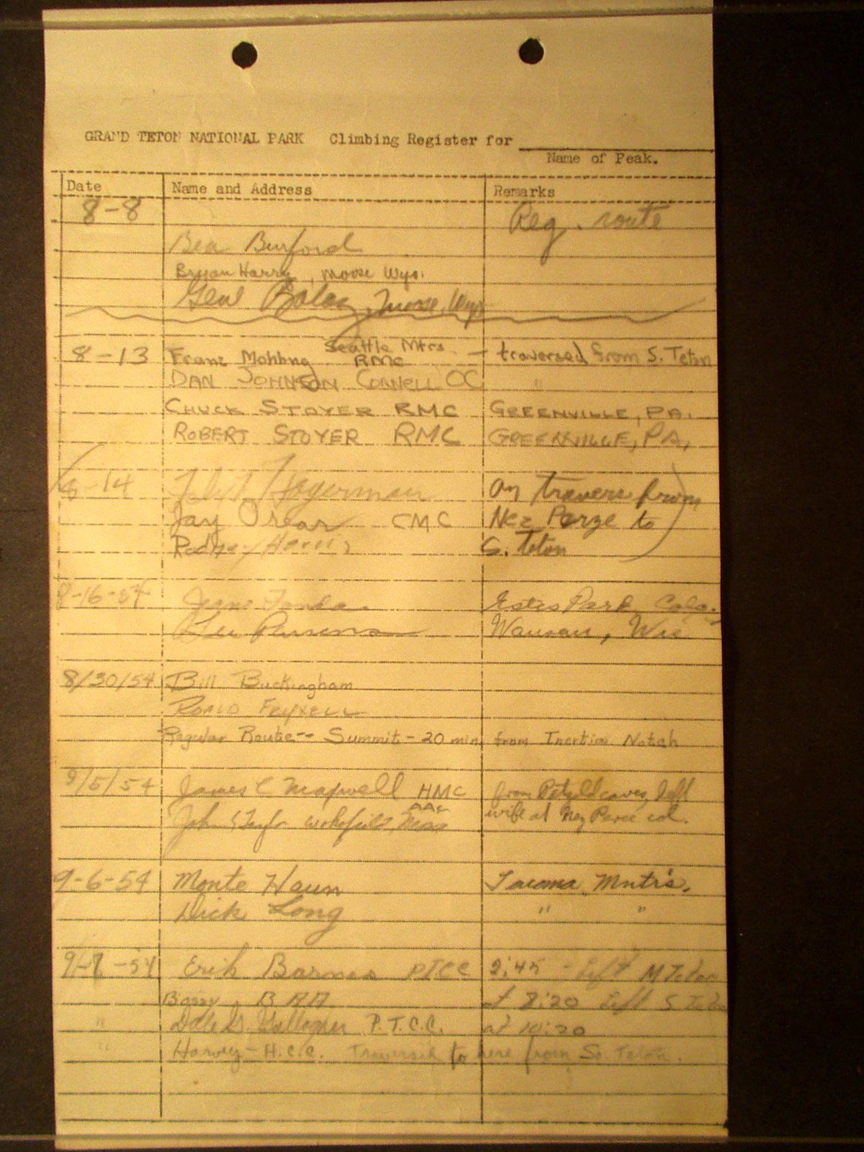 GRAND TETON NATIONAL PARK Climbing Register for
Name of Peak.
Date Name and Address Remarks
8-8 Reg. route
Bea Burford
Bryan Harry, Moose Wyo.
Gene Moose, Wyo
Seattle Mtrs.
8-13 Franz Mohling RMC - traversed from S. Teton
DAN JOHNSON CORNELL OC "
CHUCK STOYER RMC GREENVILLE, PA.
ROBERT STOYER RMC GREENVILLE, PA.
8-14 Hagerman on travers from
Jay Orear CMC Nez Perze to
Rodney Harris S. Teton
8-16-54 Estes Park, Colo.
Wausau, Wis
8/30/54 Bill Buckingham
Regular Route -- Summit - 20 min. from Inertia Notch
9/5/54 James C Maxwell HMC from Petzold caves, left
AAC
John S Taylor Wakefield, Mass wife at Nez Perce col.
9-6-54 Monte Haun Tacoma Mntr's.
Dick Long " "
-54 Erik Barnes PTCC 2:45 - left M Teton
at 8:20 left S Teton
" Dale G. Gallagher P.T.C.C. at 10:20
" Harvey - H.C.C. Traversed to here from So. Teton.